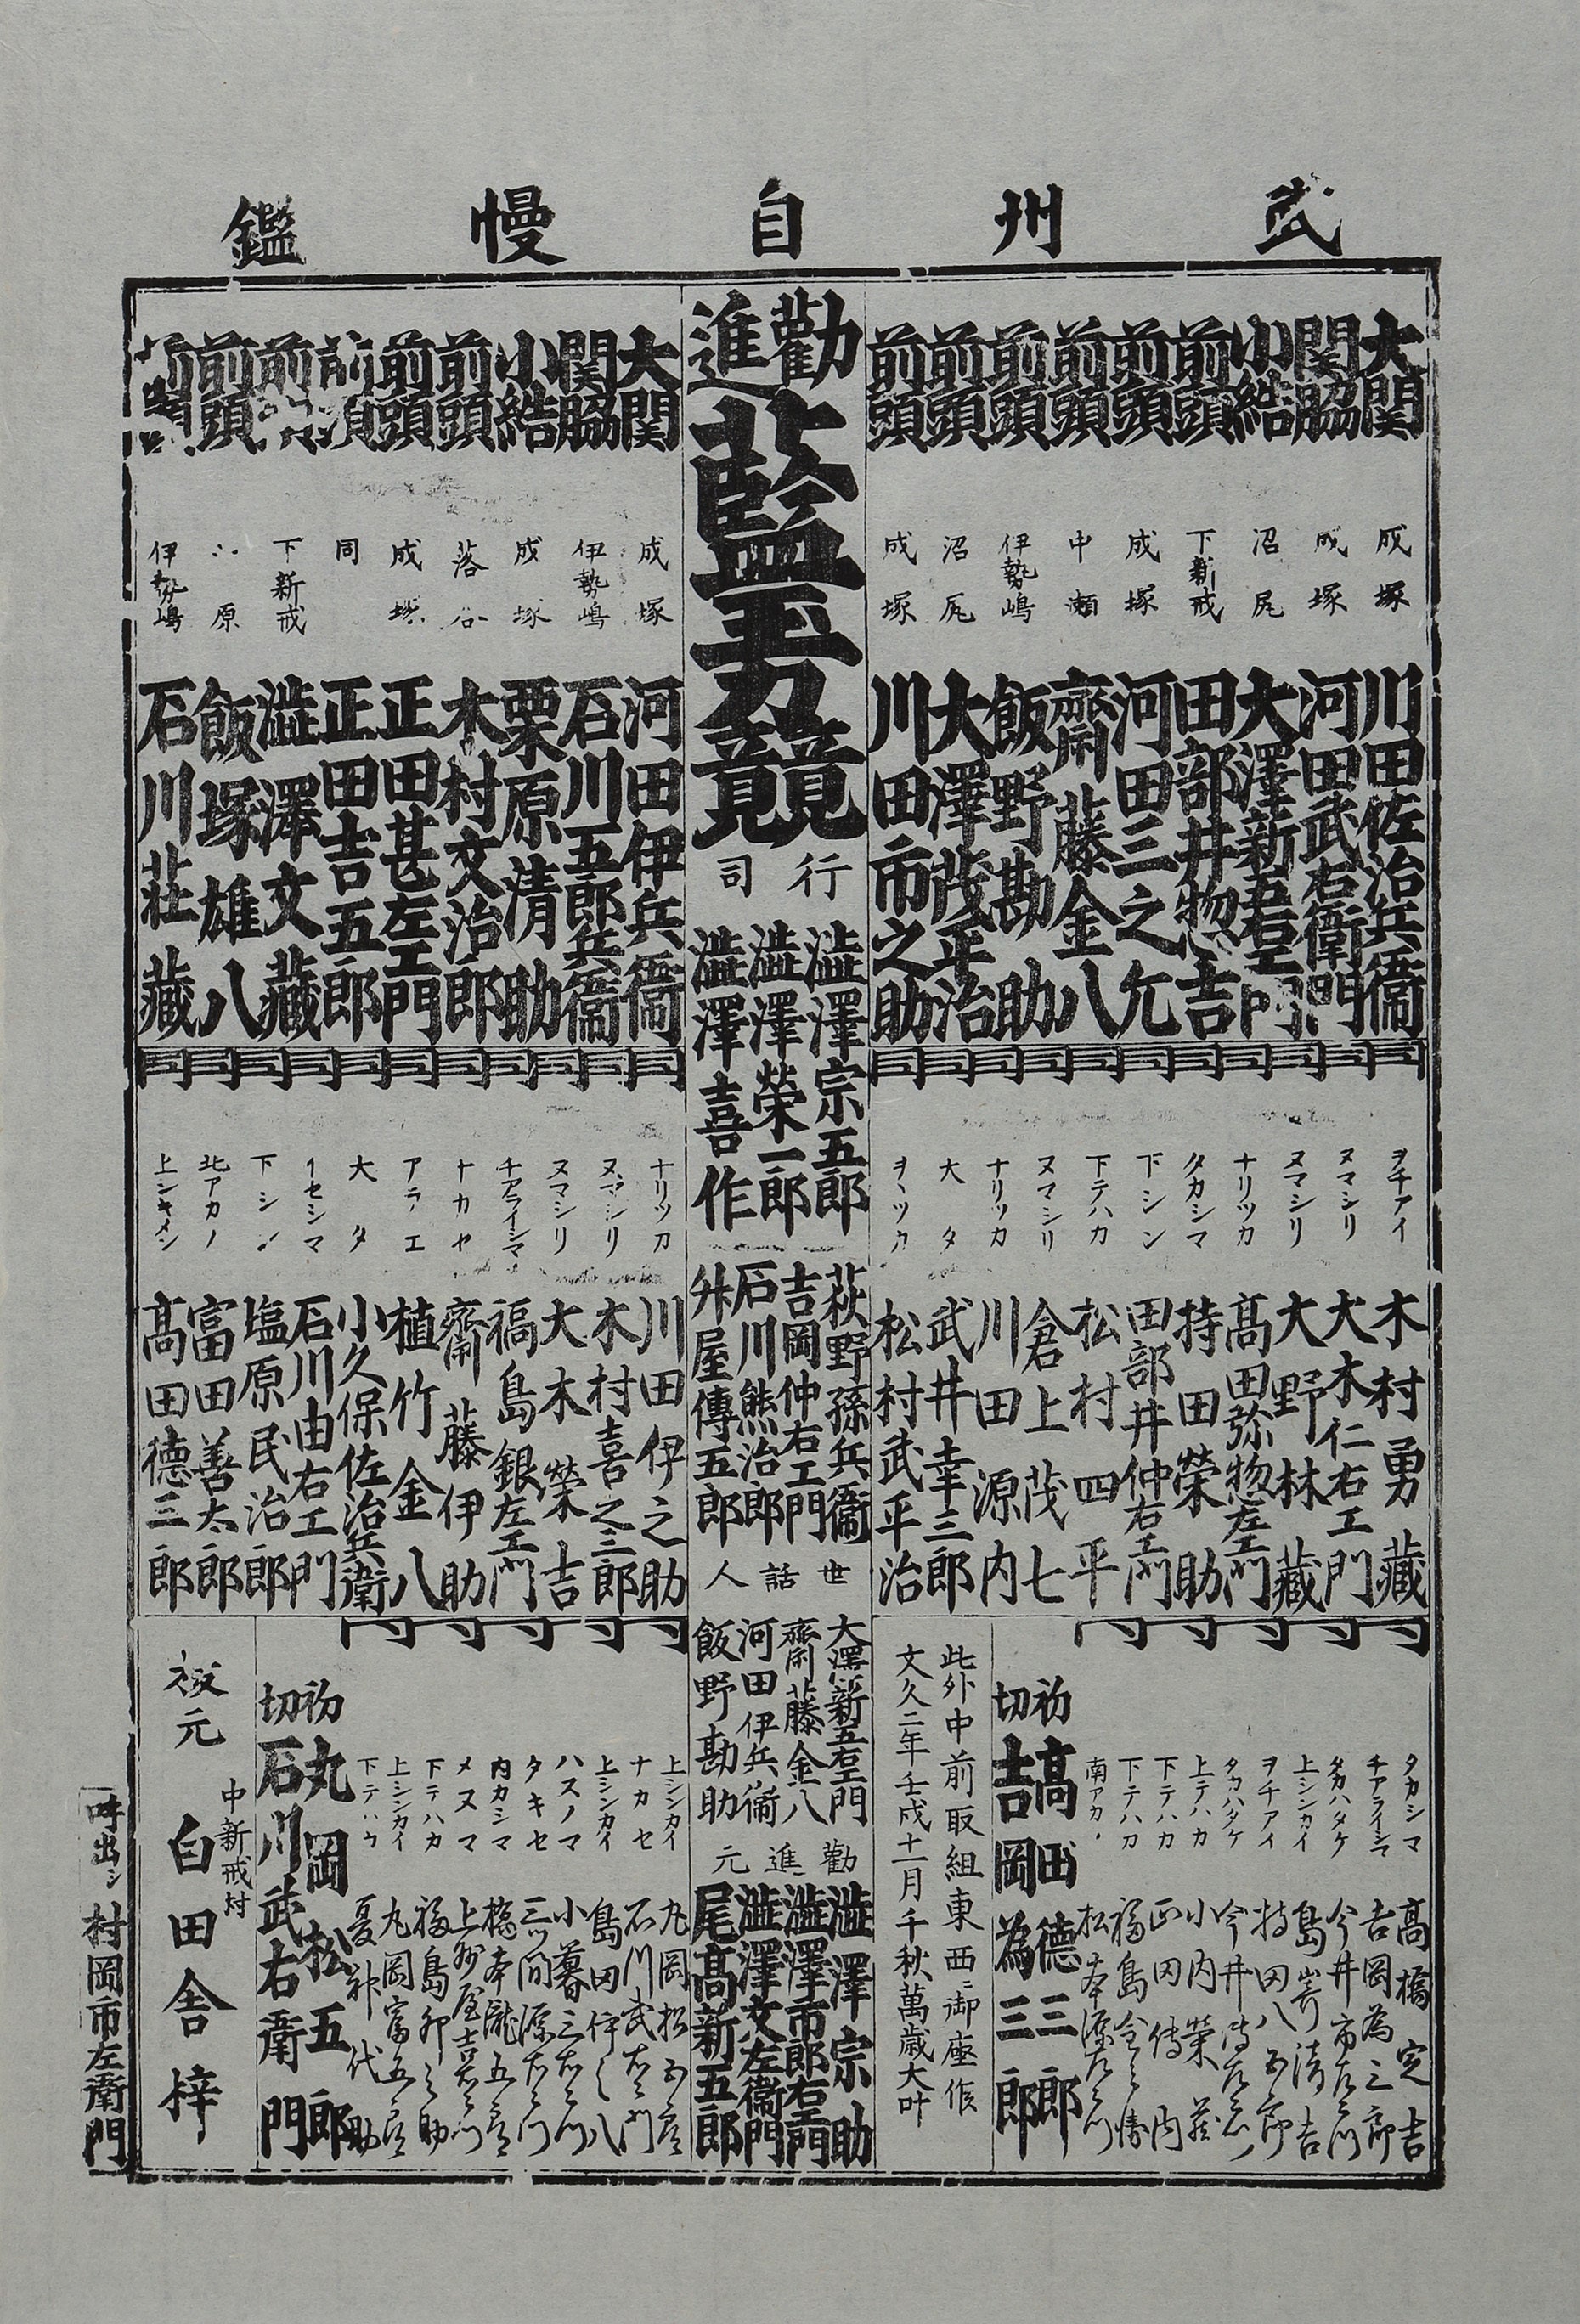 武州自慢鑑
大関 成塚 川田佐治兵衞
関脇 成塚 河田武右衛門
小結 沼尻 大澤新五右エ門
前頭 下新戒 田部井惣吉
前頭 成塚 河田三之允
前頭 中瀬 齋藤金八
前頭 伊勢嶋 飯野勘助
前頭 沼尻 大澤茂平治
前頭 成塚 川田市之助
ヲチアイ 木村勇藏
ヌマシリ 大木仁右エ門
ヌマシリ 大野林藏
ナリツカ 髙田弥惣左エ門
タカシマ 持田榮助
下シン 田部井仲右エ門
下テハカ 松村四平
ヌマシリ 倉上茂七
ナリツカ 川田源内
大タ 武井幸三郎
松村武平治
タカシマ 髙橋定吉
チアライシマ 吉岡為三郎
タカハタケ 今井市左エ門
上シンカイ 島嵜清吉
ヲチアイ 持田八五郎
タカハタケ 今井
上テハカ 小内榮藏
下テハカ 正田傳内
下テハカ 福島
南アカ 松本源左エ門
初切 髙田德三郎
吉岡為三郎
此外中前取組東西ニ御座候
文久二年壬戌十一月千秋萬歳大叶
勸進
藍玉力競
行司
澁澤宗五郎
澁澤榮一郎
澁澤喜作
萩野孫兵衞
吉岡仲右エ門
石川熊治郎
舛屋傳五郎
世話人
大澤新五右エ門
齋藤金八
河田伊兵衞
飯野勘助
勸進元
澁澤宗助
澁澤市郎右エ門
澁澤文左衞門
尾髙新五郎
大関 成塚 河田伊兵衞
関脇 伊勢嶋 石川五郎兵衞
小結 成塚 栗原清助
前頭 落合 木村文治郎
前頭 成塚 正田甚左エ門
前頭 同 正田吉五郎
前頭 下新戒 澁澤文藏
前頭 原 飯塚雄八
前頭 伊勢嶋 石川莊藏
ナリツカ 川田伊之助
ヌマシリ 木村喜之三郎
ヌマシリ 大木榮吉
チアライシマ 福島銀左エ門
ナカセ 齋藤伊助
アラエ 植竹金八
大タ 小久保佐治兵衛
イセシマ 石川由右エ門
下シン 塩原民治郎
北アカノ 富田善太郎
上シキメン 髙田德三郎
上シンカイ 丸岡松五郎
ナカセ 石川武右エ門
上シンカイ 島田伊之八
ハスノマ 小暮三右エ門
タキセ 三間源右エ門
内カシマ 橋本瀧五郎
メヌマ 上州屋吉右エ門
下テハカ 福島卯之助
上シンカイ 丸岡富五郎
初切 丸岡松五郎
石川武右衛門
板元
中新戒村
白田舎梓
呼出シ 村岡市左衛門